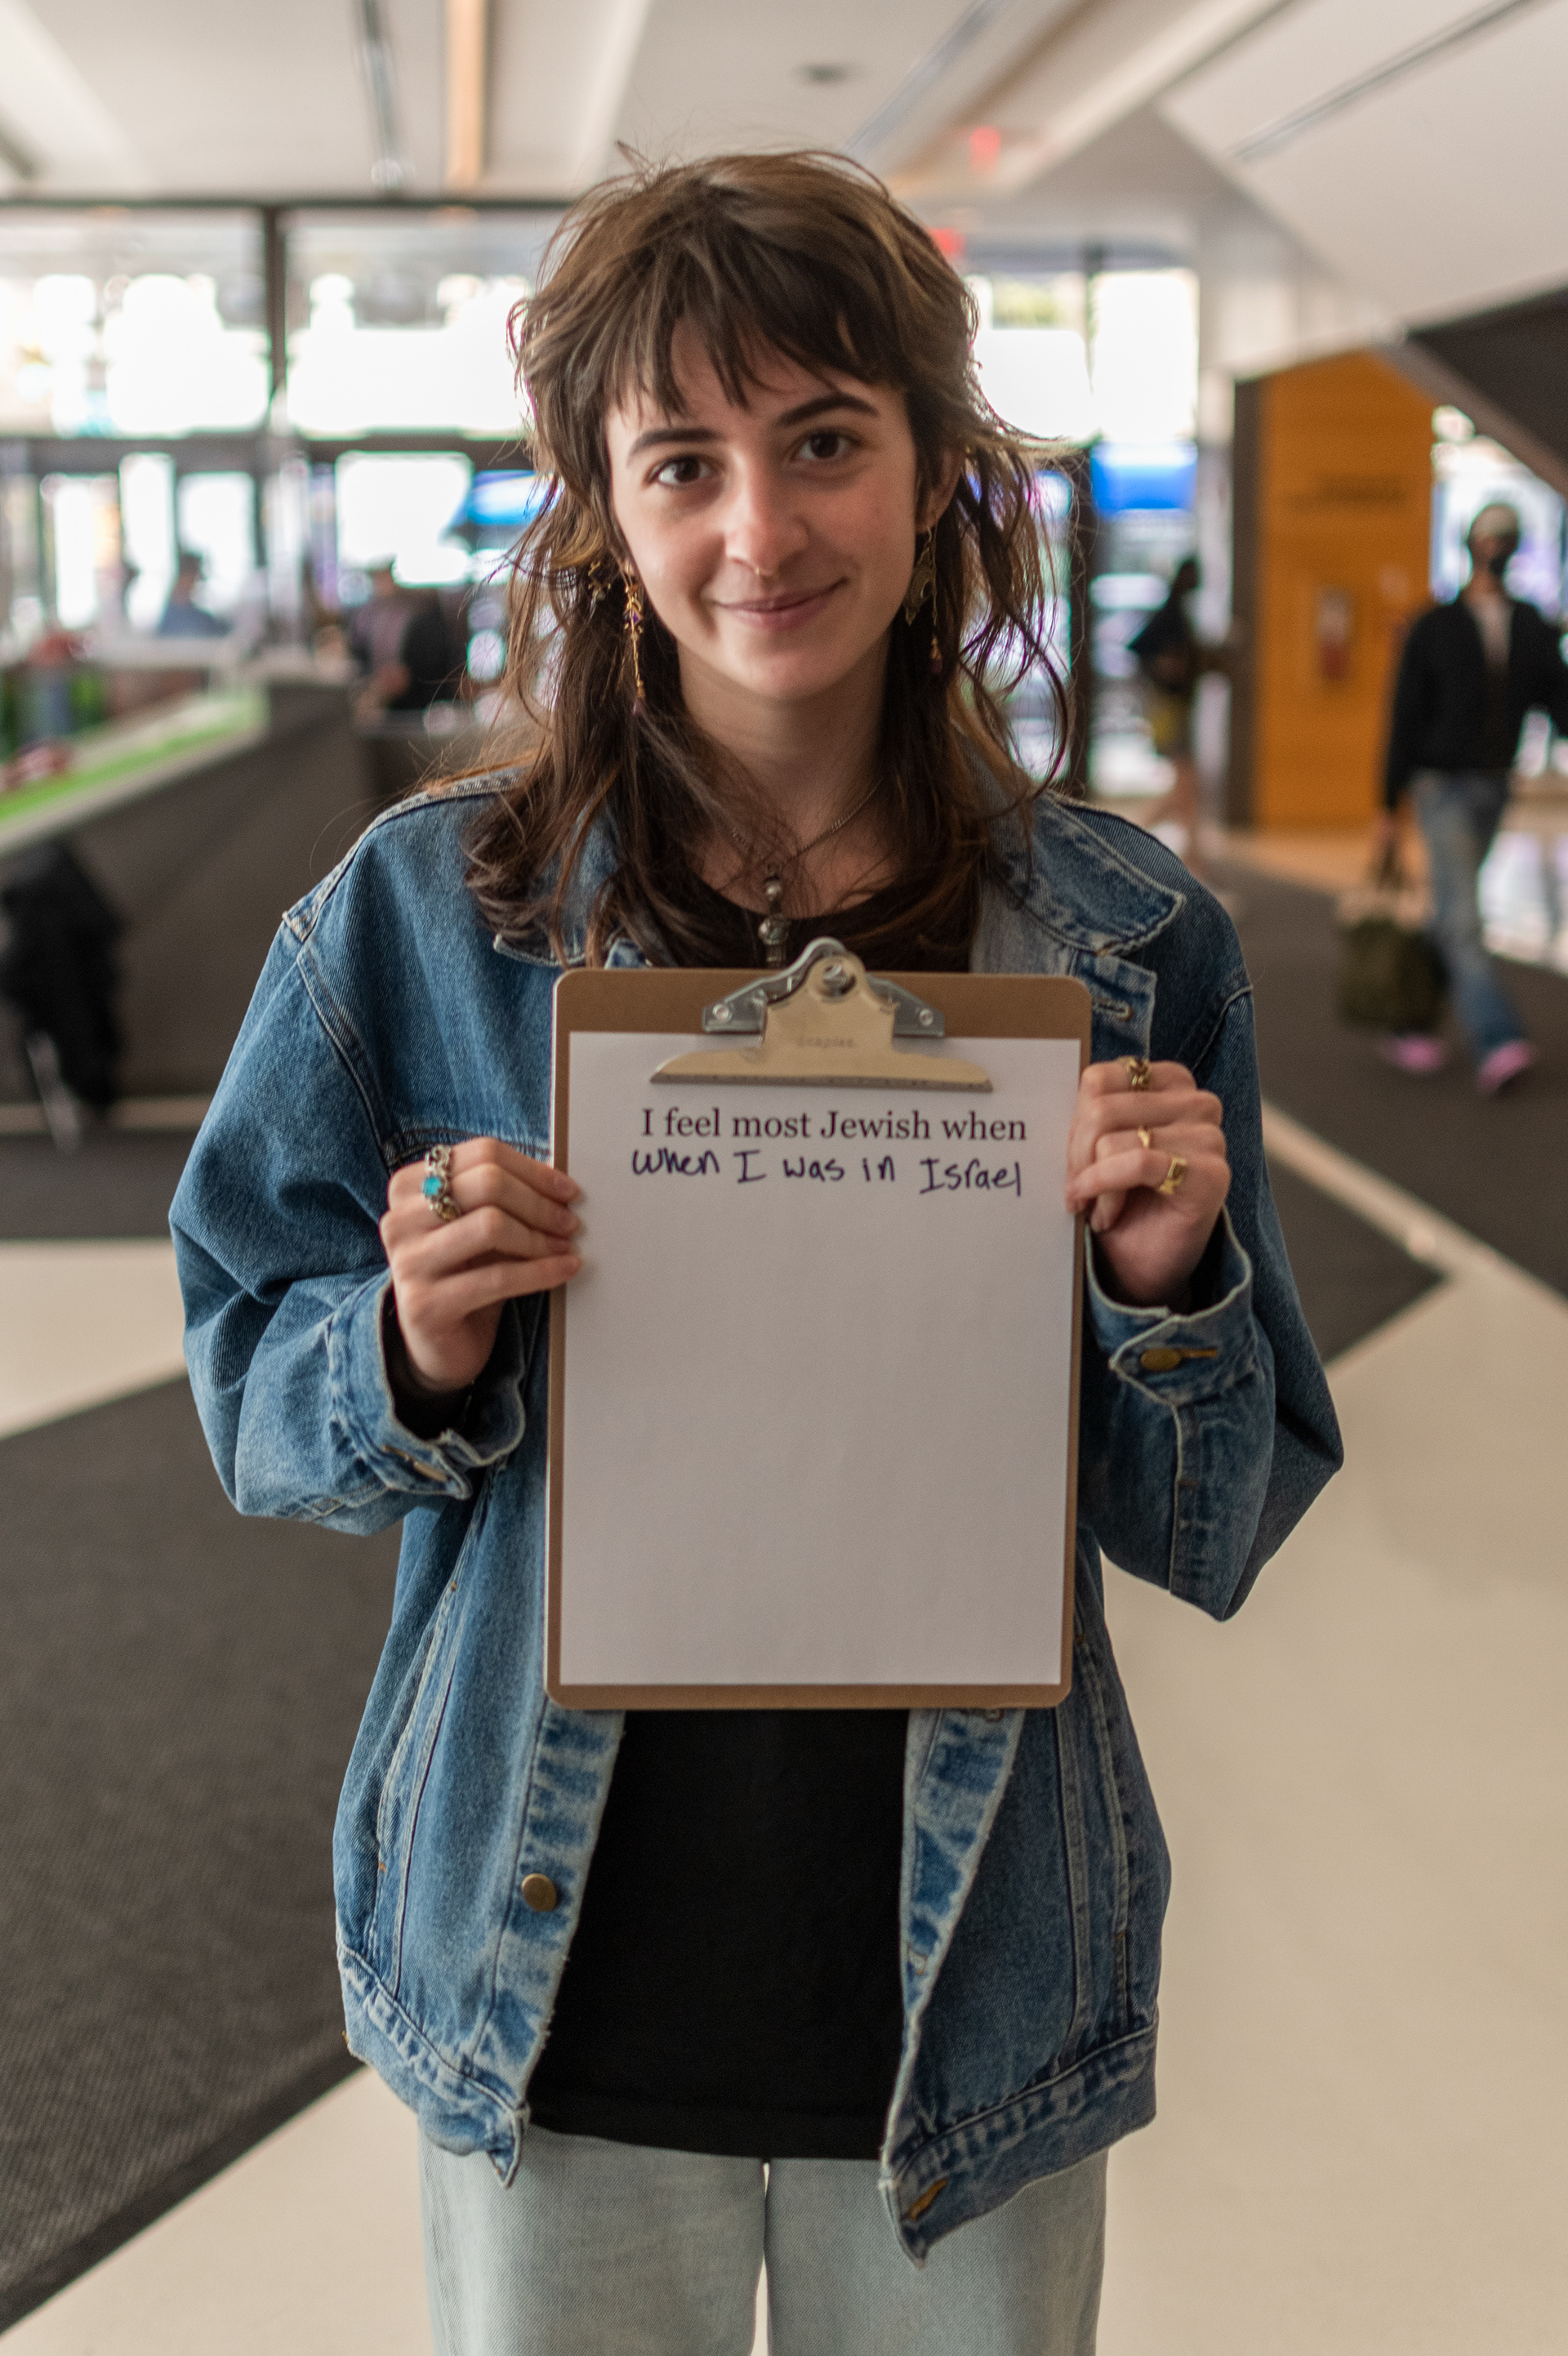 I feel most Jewish when
when I was in Israel